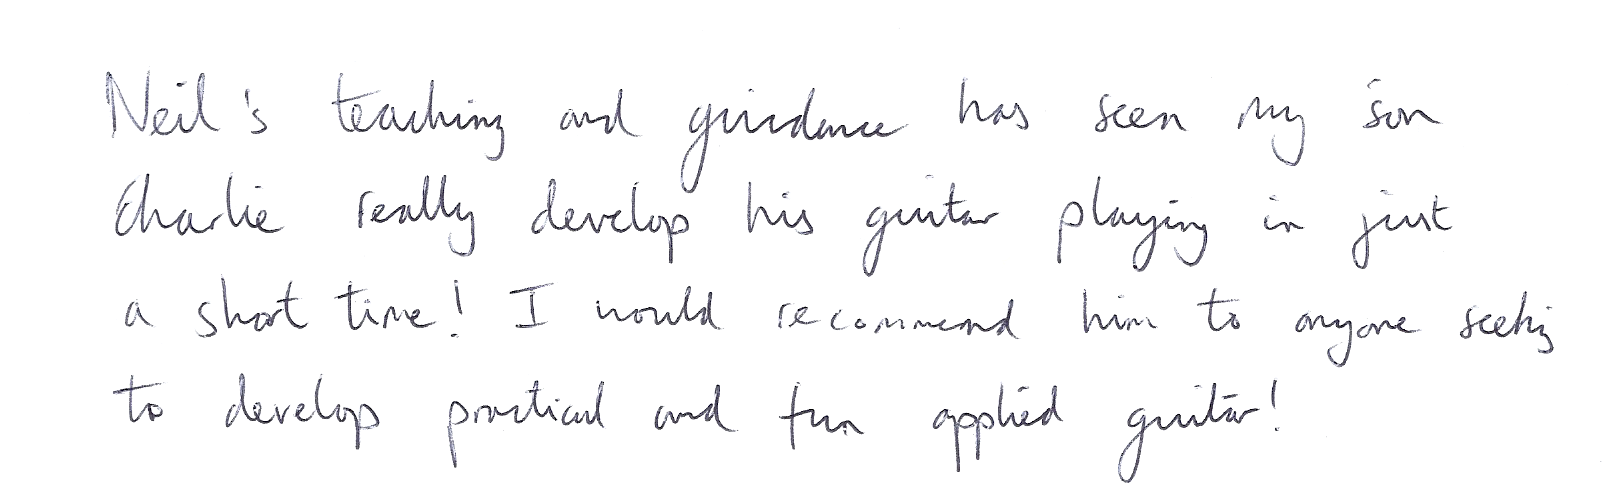 Neil's teaching and guidance has seen my son
Charlie really develop his guitar playing in just
a short time! I would recommend him to anyone seeking
to develop practical and fun applied guitar!